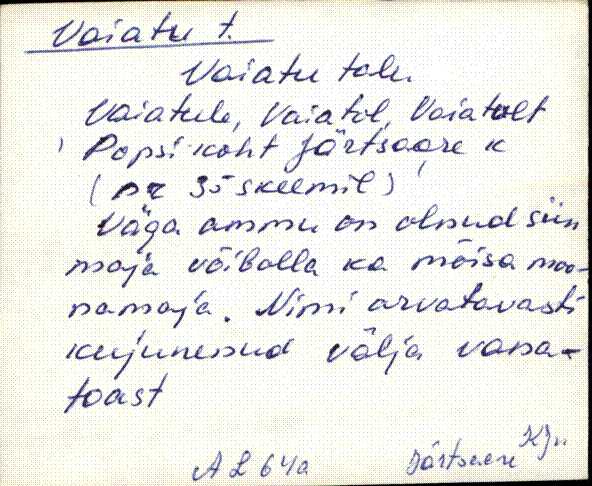 Vaiatu t.
Vaiatu talu
Vaiatule, Vaiatol, Vaiatolt
Popsi koht Järtsaare k
(nr 35 skeemil)
Väga ammu on olnud siin
maja võibolla ka mõisa moo-
namaja. Nimi arvatavasti
kujunenud välja vana-
toast
AL 64a Järtsaare KJn